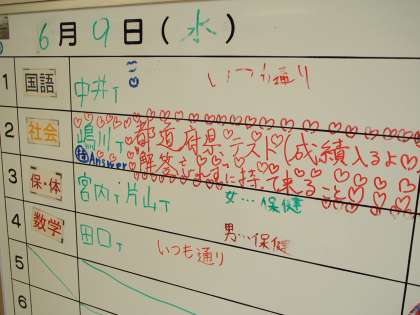 6月9日(水)
1 国語 中井T いつも通り
2 社会 嶋川T 都道府県テスト(成績入るよ
Answer 解答を忘れずに持って来ること
3 保・体 宮内T 片山T 女…保健
男…保健
4 数学 田口T いつも通り
5
6